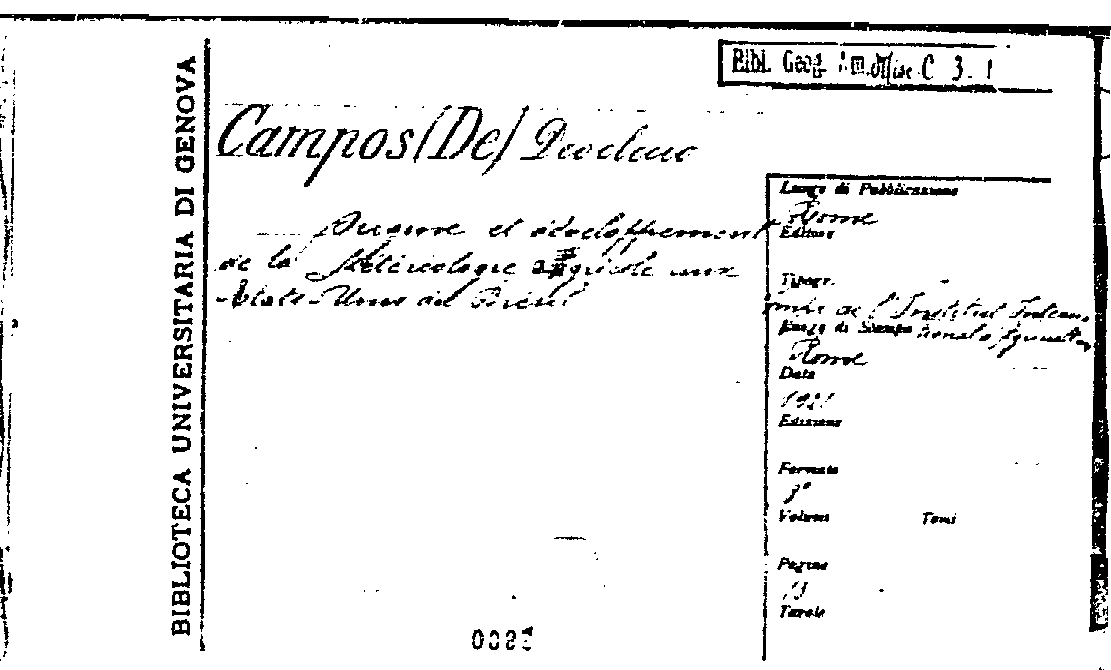 BIBLIOTECA UNIVERSITARIA DI GENOVA
Bibl. Geog. C 3. 1
Campos (De) Deocleno
et développement
de la Météréologie agricole aux
Etats-Unis du Brésil
Luogo di Pubblicazione
Rome
Editore
Tipogr.
de l'Institut Intern.
Luogo di Stampa
Rome
Data
1921
Edizione
Formato
Volumi Tomi
Pagine
Tavole